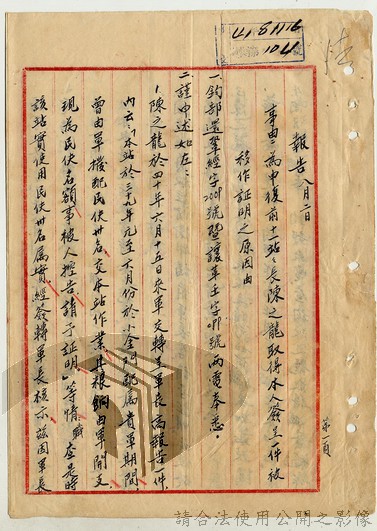 陸
報告 八月二日
事由：為申復前十一站々長陳之龍取得本人簽呈一件被
移作証明之原因由
一、鈞部還鞏經字 號暨讓革土字 號兩電奉悉。
二、謹申述如左：
1.陳之龍於四十年六月十五日來軍交轉呈軍長 高報告一件
內云：「本站於三九年元至六月份於小金門配屬 貴軍期間
曾由軍撥配民伕卅名交本站作業其糧餉由軍開支
現為民伕名額事被人控告請予証明」等情 職查是時
該站實使用民伕卅名屬實經簽轉軍長核示茲因軍長
第一頁
請合法使用公開之影像